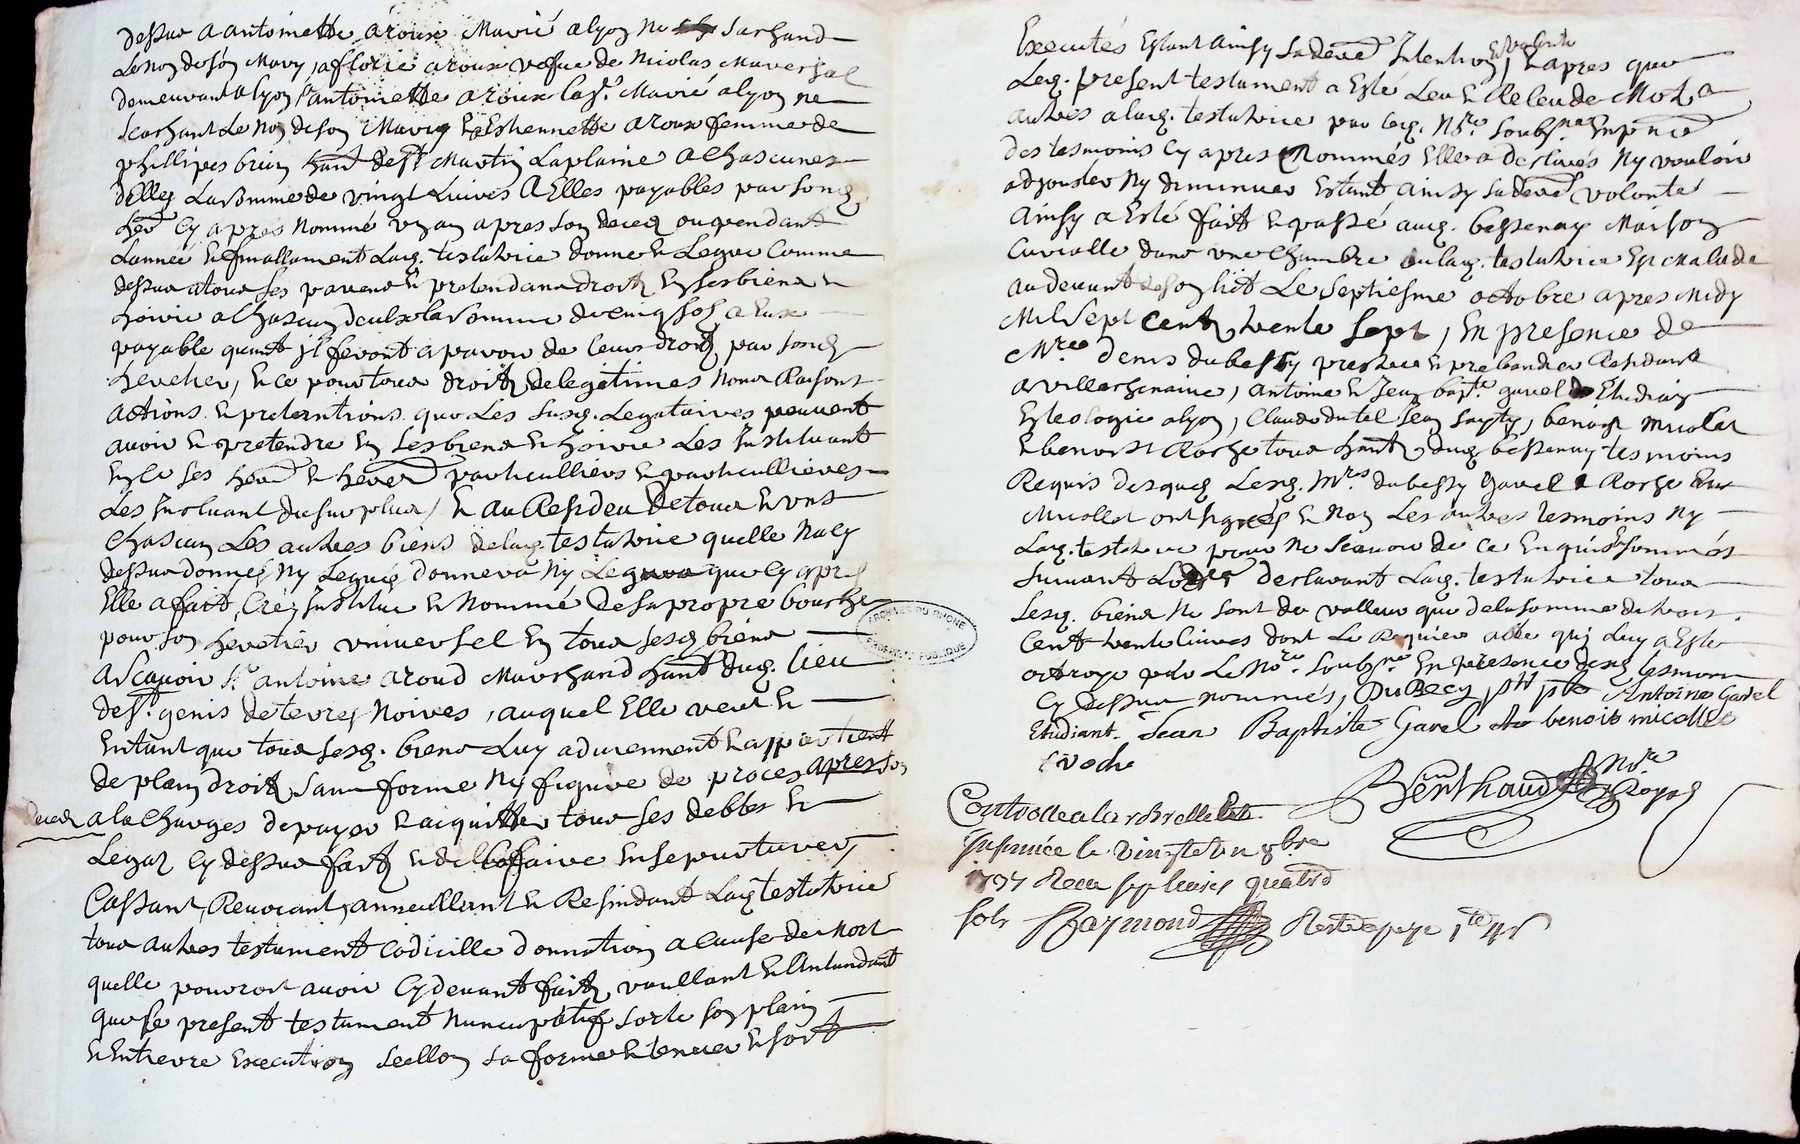 dessus a antoinette aroux Marié a lyon ne sachand
Le Non de son Mary, a florie aroux vefue de Nicolas Mareschal
demeurant a lyon, antoinette aroux la je. Marié a lyon ne
scachant Le Non de son Mary Et Estiennette aroux femme de
phillipes brun hant de st Martin Laplaine a chascunes
d'Elles La somme de vingt Livres a Elles payables par sond.
her. Cy apres Nommé un an apres son deces ou pendant
Lannée Et finallement Lad. testatrice donne et Legue Comme
dessus a tous ses parens et pretendans droitz En ses biens et
hoirie a chascun deulx la somme de cinq sols a Eux
payable quant jl feront aparoir de leurs droitz par sond.
heretier, Et ce pour tous droitz de legitimes Noms Raisons
actions et pretentions que Les susd. Legataires peuvent
avoir et pretendre En ses biens et hoirie Les Instituant
En ce ses heritiers et heritieres particulliers et particullieres
Les Excluant du surplus, Et au Residu de tous Et uns
Chascun Les autres biens de lad. testatrice quelle Na cy
dessus donnés Ny Legués donnera Ny Leguera que cy apres
Elle a fait, Créé Institue et Nommé de sa propre bouche
pour son heretier universel En tous sesd. biens
a scavoir Sr. antoine aroud Marchand hant dud. Lieu
de st. genis de terres Noires, auquel Elle veut et
Entant que tous sesd. biens Luy adviennent et appartient
de plain droitz sans forme Ny figure de proces apres son
deceds a la Charges de payer et aquitter tous ses debtes et
Legaz Cy dessus faitz et de l'affaire Ensepulturer,
Cassant, Revocant, annullant et Resindant Lad. testatrice
tous autres testament Codicille donnation a Cause de Mort
quelle pourroit avoir Cy devant faitz, voullant et Entandant
que se present testament Nuncupatif sorte son plain
et Entierre Execution seellon sa forme et teneur et soit
Executés Estant ainsy sa derre Intention, Et volonté Et apres que
Led. present testament a Esté Leu et Releu de Mot a
autres a lad. testatrice par led. Nore. soubsné En pnce
des tesmoins Cy apres Nommés Elle a declarés Ny vouloir
adjouster Ny diminuer Estant ainsy sa derre volonté
ainsy a Esté fait et passé aud. bessenay Maison
Curialle dans une Chambre ou lad. testatrice Est Malade
au devant de son lict Le septiesme octobre apres Midy
Mil sept Centz trente sept, En presence de
Mre denis dubessy prestre et prebendier Residant
a villechenaive, antoine Et Jean bapte. gavel Etudian
En teologie a lyon, Claude dutel Jean sayty, benoist Micollet
Et benoist Roche tous hantz dud. bessenay tesmoins
Requis desquels Lesd. Mrs. dubessy Gavel Roche Et
Micollet ont signés et Non Les autres tesmoins Ny
Lad. testatrice pour ne scavoir de ce Enquis et sommés
suivant Lordce declarant Lad. testatrice tous
Lesd. biens Ne sont de valleur que de la somme de trois
Cent trente livres dont Le Requiers acte quj Luy a Esté
octroyé par Le Nore. soubsné En presence desd. tesmoins
Cy dessus nommés, DuBecy ptr pbr Antoine Gavel
Etudiant. Jean Baptiste Gavel Etu benoit micollet
Eroche
Benthaud Nore Royal
Controlle a lar Brelle Et
Insinuée le vingt et un 8bre
1737 Recu sept livres quatre
sols Raymond Reste a paye
ARCHIVES DU RHONE
PROPRIÉTÉ PUBLIQUE